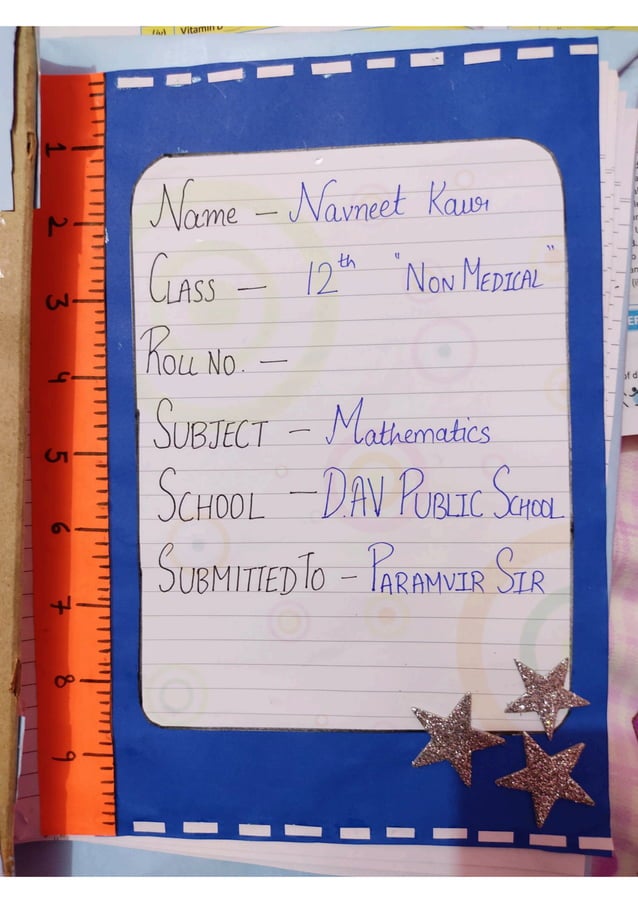 (iv) Vitamin D
1
2
3
4
5
6
7
8
9
Name – Navneet Kaur
CLASS – 12th "NON MEDICAL"
ROLL NO. –
SUBJECT – Mathematics
SCHOOL – D.AV PUBLIC SCHOOL
SUBMITTED TO – PARAMVIR SIR